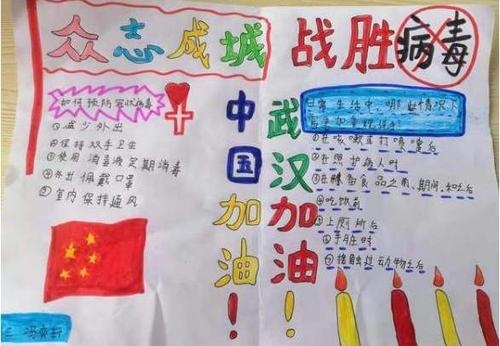 众志成城 战胜病毒
如何预防冠状病毒
①减少外出
②保持双手卫生
③使用消毒液定期消毒
④外出佩戴口罩
⑤室内保持通风
中国加油!
武汉加油!
日常生活中,哪些情况下
①在咳嗽或打喷嚏后
②在照护病人时
③在准备食品之前、期间和之后
④吃饭前
⑤上厕所后
⑥手脏时
⑦接触过动物之后